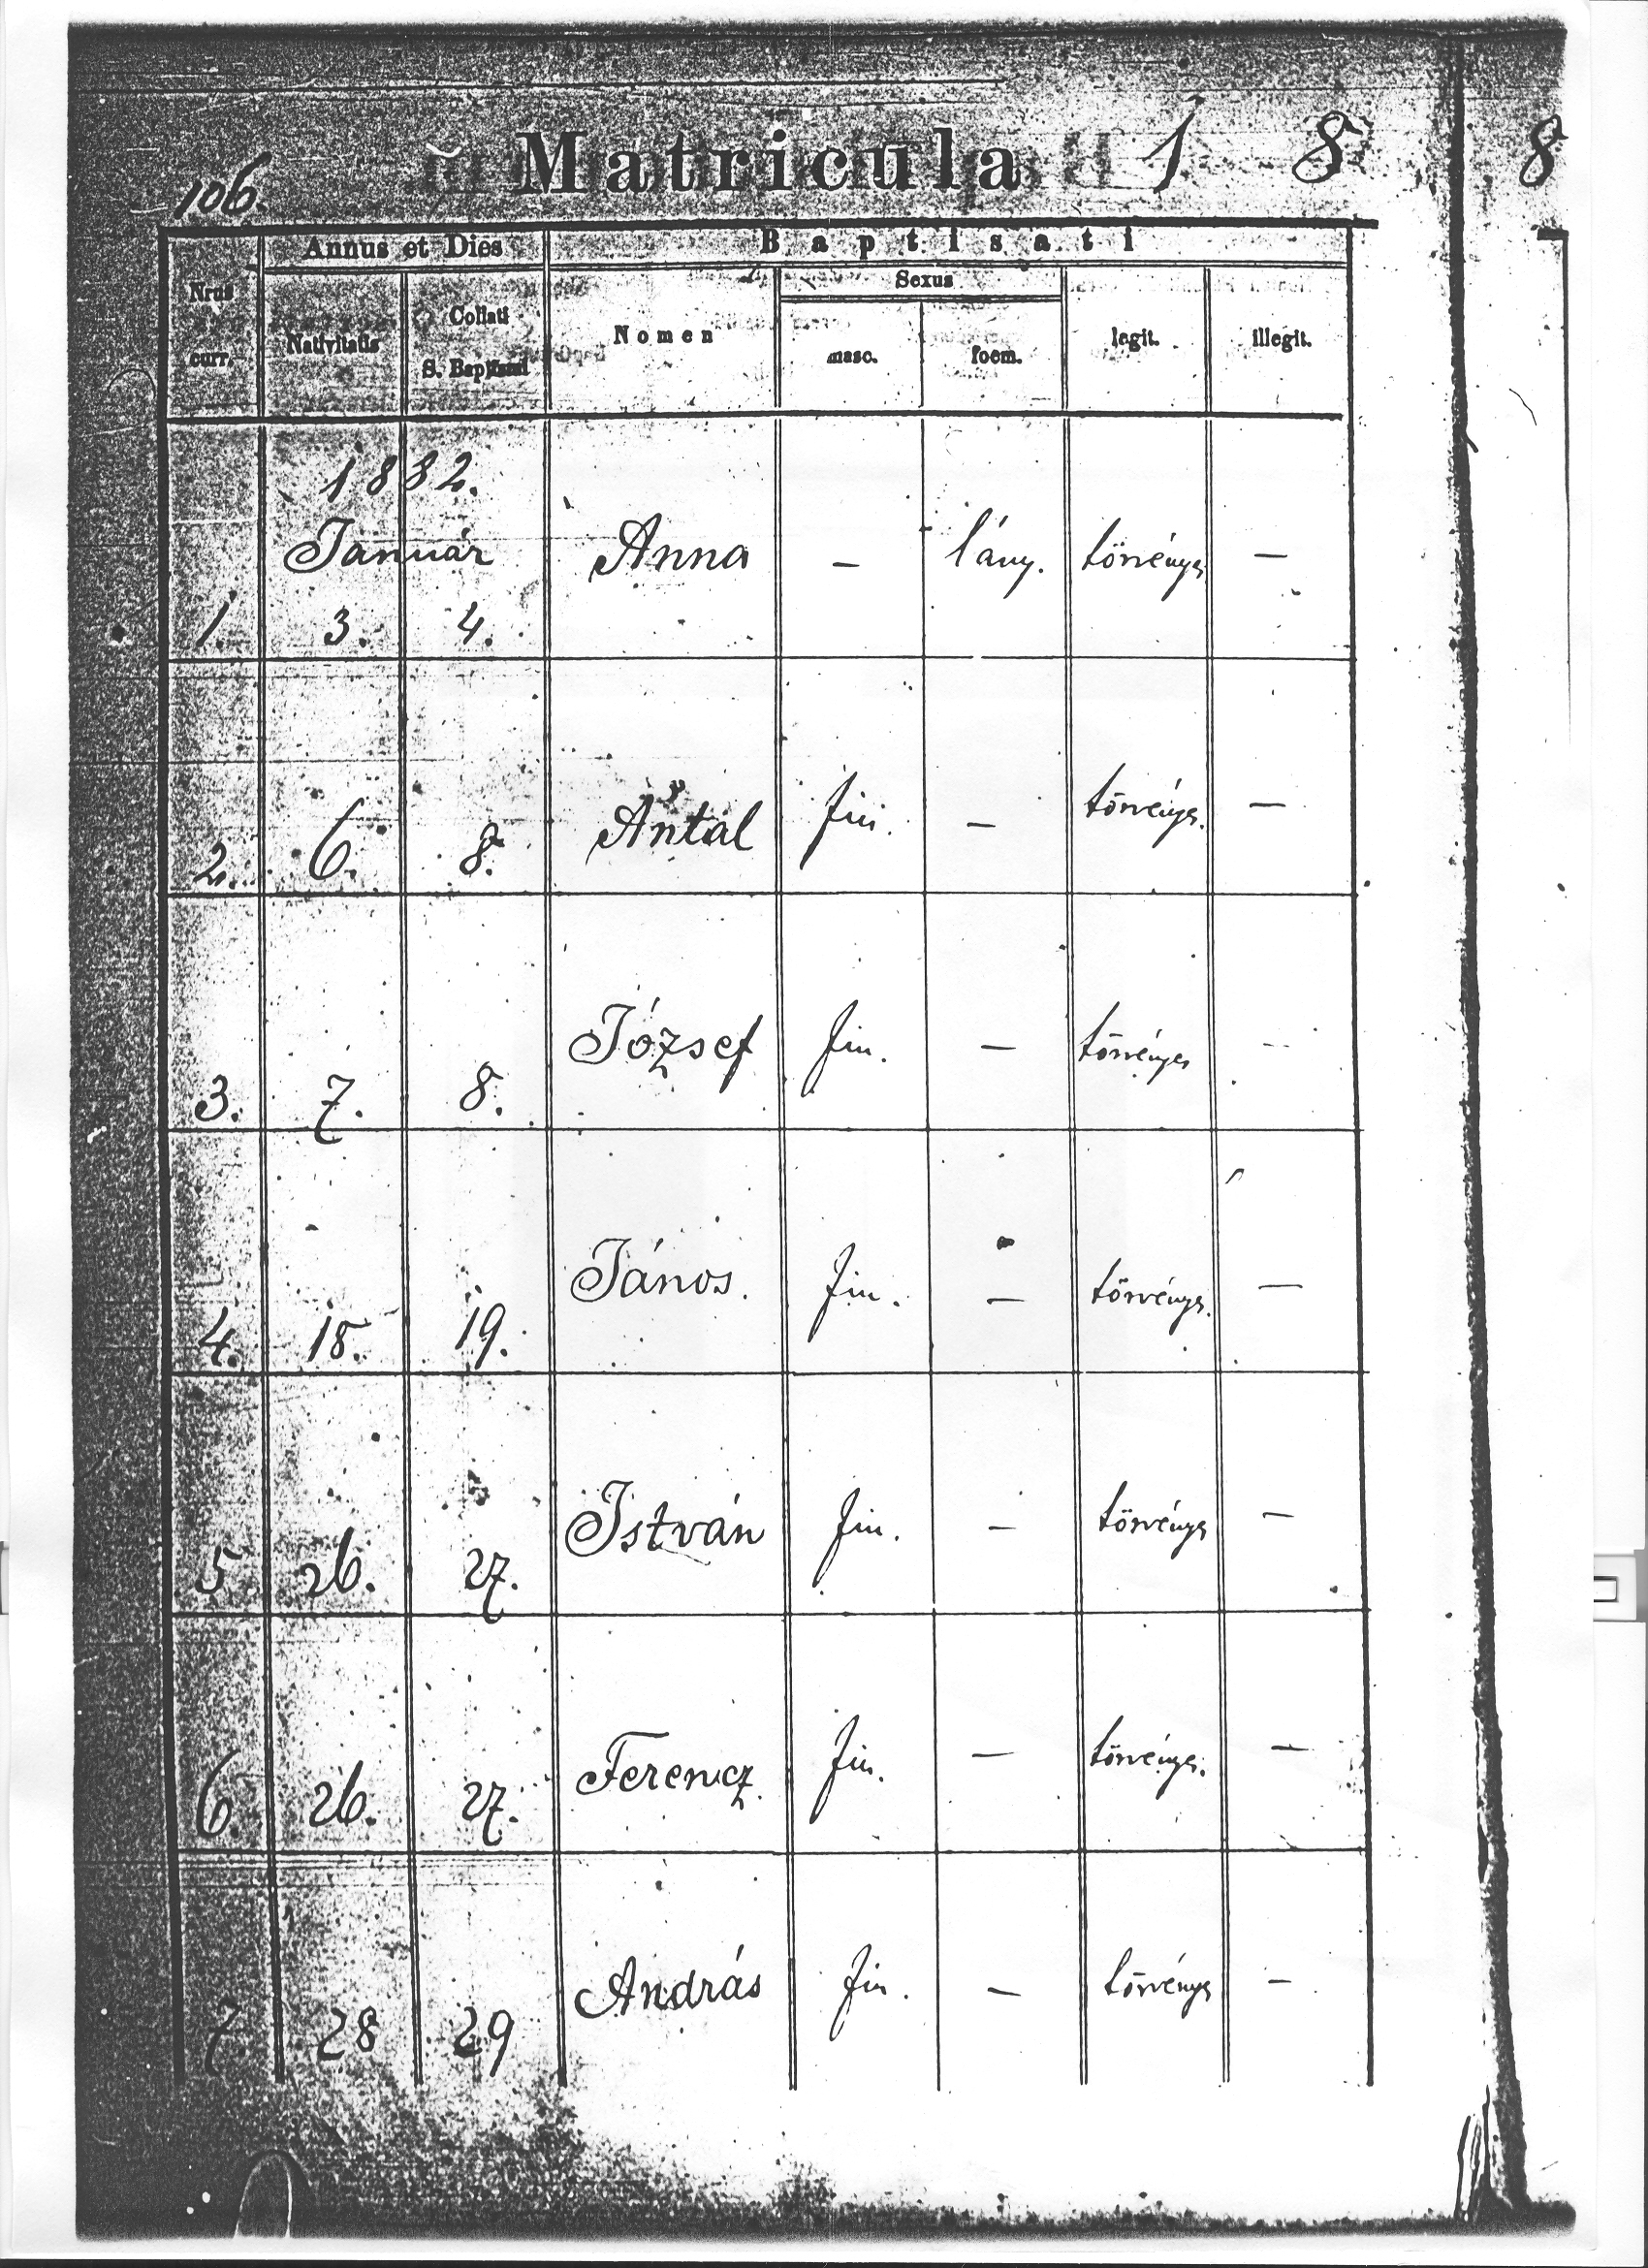 106.
Matricula 1 8 8
Annus et Dies Baptisati
Nrus curr. Nativitatis Collati S. Baptismi Nomen Sexus masc. foem. legit. illegit.
1882.
Január Anna — lány. törvényes —
1. 3. 4.
Antal fiu. — törvényes. —
2. 6. 8.
József fiu. — törvényes —
3. 7. 8.
János. fiu. — törvényes. —
4. 18. 19.
István fiu. — törvényes —
5. 26. 27.
Ferencz. fiu. — törvényes. —
6. 26. 27.
András fiu. — törvényes —
7. 28 29